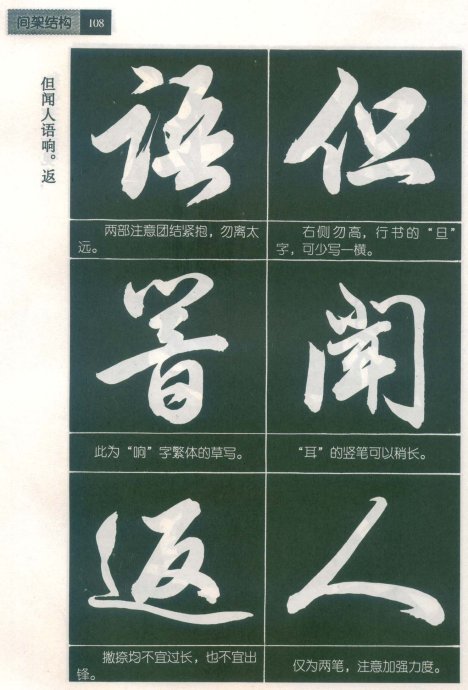 间架结构 108
但闻人语响。返
但
右侧勿高，行书的“旦”
字，可少写一横。
聞
“耳”的竖笔可以稍长。
人
仅为两笔，注意加强力度。
語
两部注意团结紧抱，勿离太
远。
響
此为“响”字繁体的草写。
返
撇捺均不宜过长，也不宜出
锋。